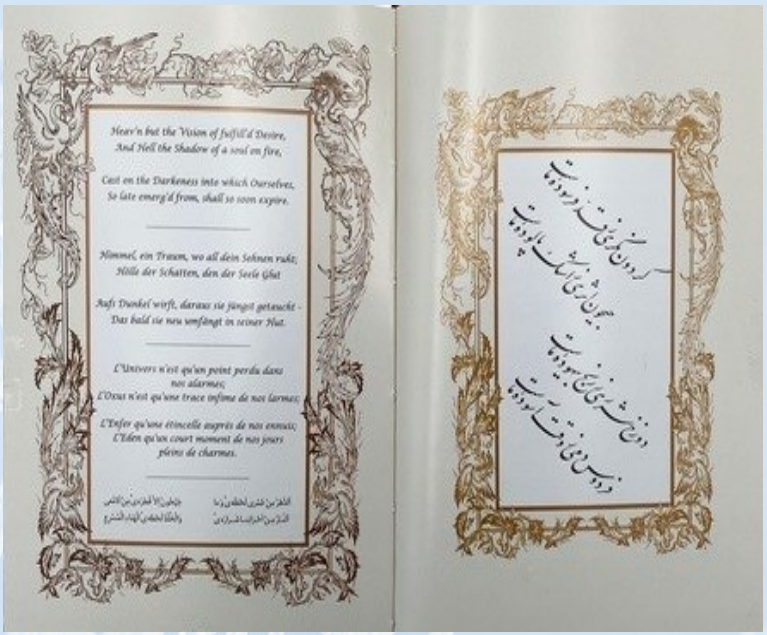 Heav'n but the Vision of fulfill'd Desire,
And Hell the Shadow of a soul on fire,
Cast on the Darkness into which Ourselves,
So late emerg'd from, shall so soon expire.
Himmel, ein Traum, wo all dein Sehnen ruht;
Hölle der Schatten, den der Seele Glut
Aufs Dunkel wirft, daraus sie jüngst getaucht -
Das bald sie neu umfängt in seiner Hut.
L'Univers n'est qu'un point perdu dans
nos alarmes;
L'Oxus n'est qu'une trace infime de nos larmes;
L'Enfer qu'une étincelle auprès de nos ennuis;
L'Eden qu'un court moment de nos jours
pleins de charmes.
گردون نگری ز قد فرسوده ماست
جیحون اثری ز اشک پالوده ماست
دوزخ شرری ز رنج بیهوده ماست
فردوس دمی ز وقت آسوده ماست